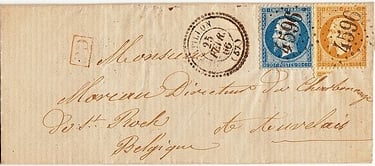 25
FEVR.
66
(57)
4596
4596
PD
Monsieur
Moreau Directeur du Charbonnage
de St. Roch
à Auvelais
Belgique